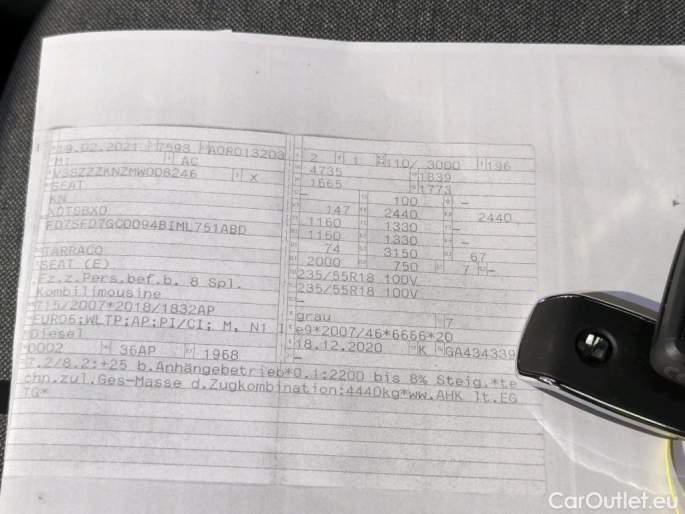 19.02.2021 7593 AOR013203 2 1 110/ 3000 196
M1 AC 4735 1839
VSSZZZKNZMW008246 X 1665 1773
SEAT – 100 –
KN 147 2440 2440
XDTSBX0 1160 1330 –
FD7SFD7GC0094BIML751ABD 1150 1330 –
– 74 3150 67
TARRACO 2000 750 7 –
SEAT (E) 235/55R18 100V
Fz.z.Pers.bef.b. 8 Spl. 235/55R18 100V
Kombilimousine –
715/2007*2018/1832AP grau 7
EURO6;WLTP;AP;PI/CI; M, N1 I e9*2007/46*6666*20
Diesel 18.12.2020 K GA434339
0002 36AP 1968 –
7.2/8.2:+25 b.Anhängebetrieb*0.1:2200 bis 8% Steig.*te
chn.zul.Ges-Masse d.Zugkombination:4440kg*ww.AHK lt.EG
TG*
CarOutlet.eu